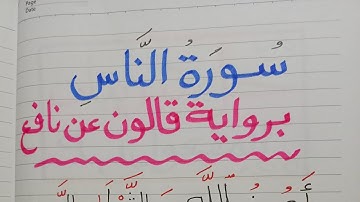 Page
Date
سُورَةُ النَّاسِ
برواية قالون عن نافع